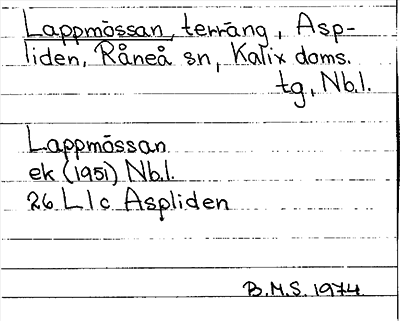 Lappmössan, terräng, Asp-
liden, Råneå sn, Kalix doms.
tg, Nb.l.
Lappmössan
ek (1951) Nb.l.
26 L 1 c Aspliden
B.M.S. 1974